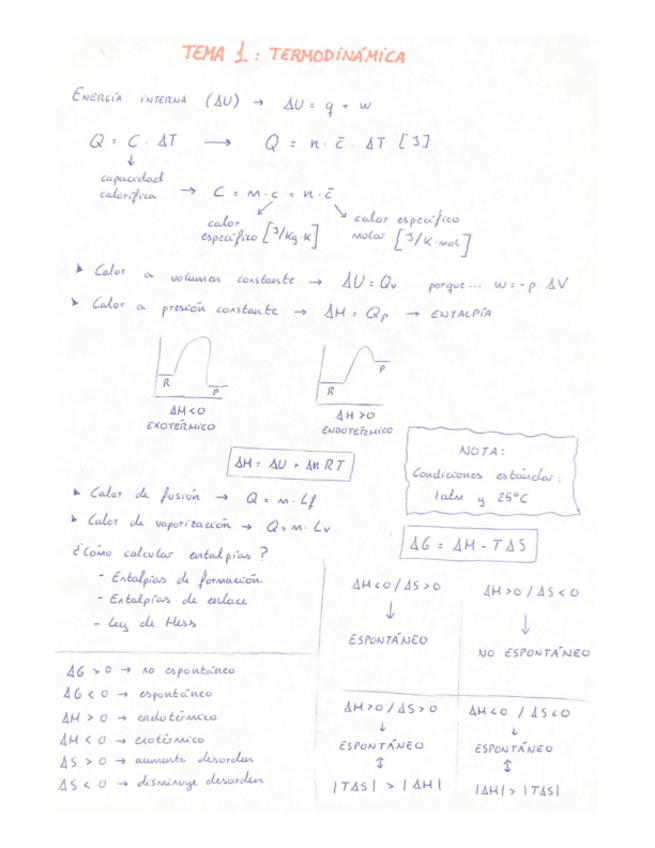 TEMA 1: TERMODINÁMICA
ENERGÍA INTERNA (ΔU) → ΔU = q + w
Q = C · ΔT → Q = n · c̄ · ΔT [J]
↓
capacidad
calorífica → C = m · c = n · c̄
calor
específico [J/Kg·K]
calor específico
molar [J/K·mol]
▸ Calor a volumen constante → ΔU = Qv porque... w = -p ΔV
▸ Calor a presión constante → ΔH = Qp → ENTALPÍA
R
P
ΔH < 0
EXOTÉRMICO
R
P
ΔH > 0
ENDOTÉRMICO
ΔH = ΔU + Δn RT
NOTA:
Condiciones estándar:
1 atm y 25°C
▸ Calor de fusión → Q = m · Lf
▸ Calor de vaporización → Q = m · Lv
ΔG = ΔH - TΔS
¿Cómo calcular entalpías?
- Entalpías de formación
- Entalpías de enlace
- Ley de Hess
ΔH < 0 / ΔS > 0
↓
ESPONTÁNEO
ΔH > 0 / ΔS < 0
↓
NO ESPONTÁNEO
ΔG > 0 → no espontáneo
ΔG < 0 → espontáneo
ΔH > 0 → endotérmico
ΔH < 0 → exotérmico
ΔS > 0 → aumenta desorden
ΔS < 0 → disminuye desorden
ΔH > 0 / ΔS > 0
↓
ESPONTÁNEO
↕
|TΔS| > |ΔH|
ΔH < 0 / ΔS < 0
↓
ESPONTÁNEO
↕
|ΔH| > |TΔS|